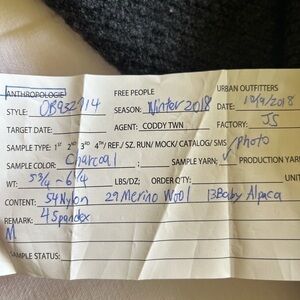 ANTHROPOLOGIE FREE PEOPLE URBAN OUTFITTERS
STYLE: OB932714 SEASON: Winter 2018 DATE: 10/9/2018
TARGET DATE: AGENT: CODDY TWN FACTORY: JS
SAMPLE TYPE: 1ST 2ND 3RD 4TH/ REF./ SZ. RUN/ MOCK/ CATALOG/ SMS ✓ photo
SAMPLE COLOR: Charcoal SAMPLE YARN: PRODUCTION YAR
WT: 5 3/4 ~ 6 1/4 LBS/DZ; ORDER Q'TY: UNIT
CONTENT: 54 Nylon 29 Merino Wool 13 Baby Alpaca
REMARK: 4 Spandex
M
SAMPLE STATUS: